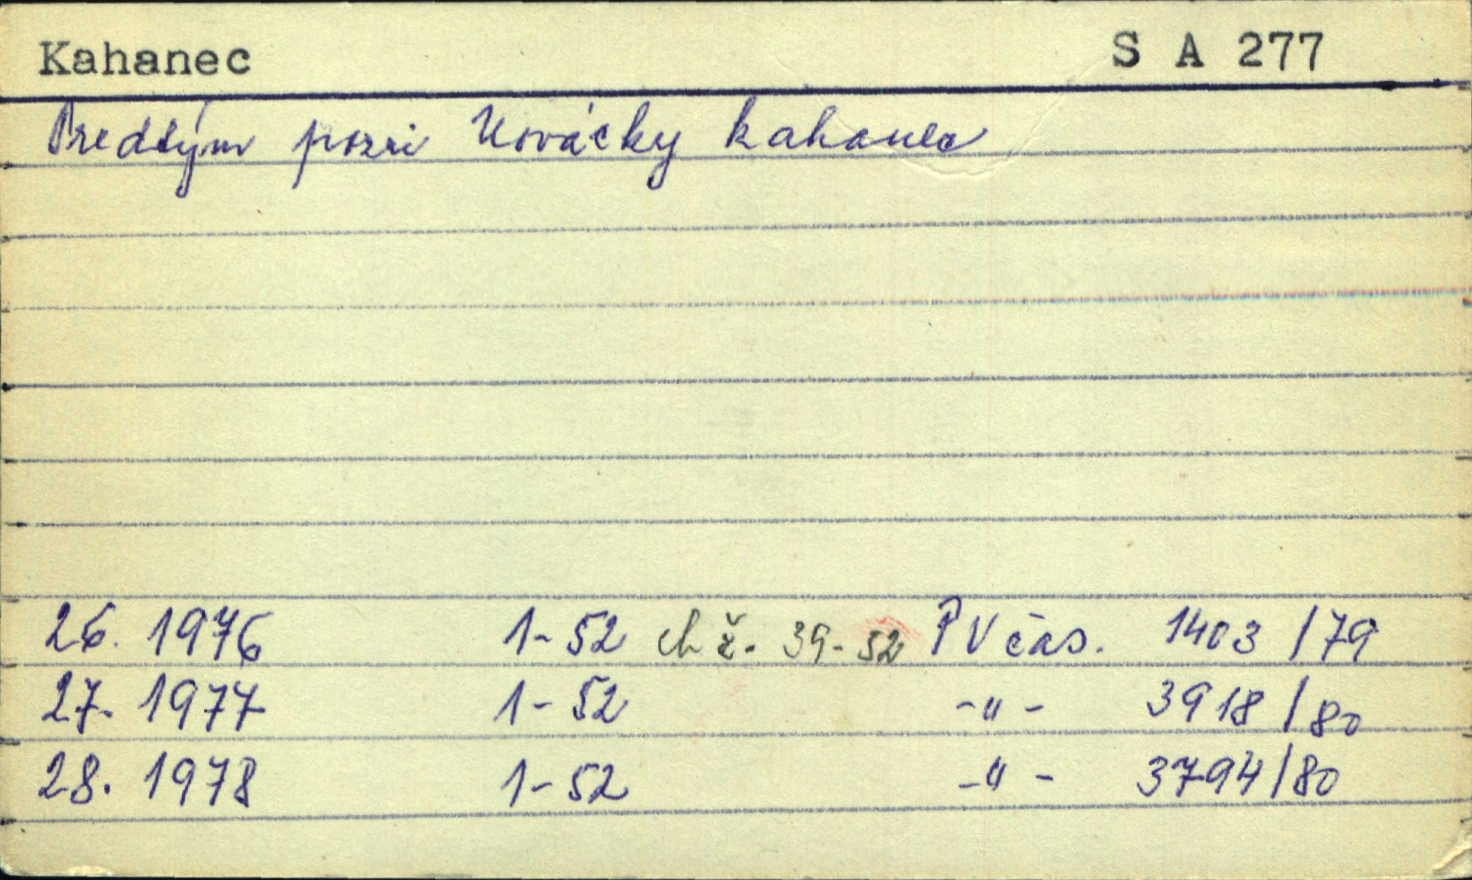 Kahanec S A 277
Predtým pozri Novácky kahanec
26. 1976 1-52 chž. 39-52 PV čas. 1403/79
27. 1977 1-52 -"- 3918/80
28. 1978 1-52 -"- 3794/80